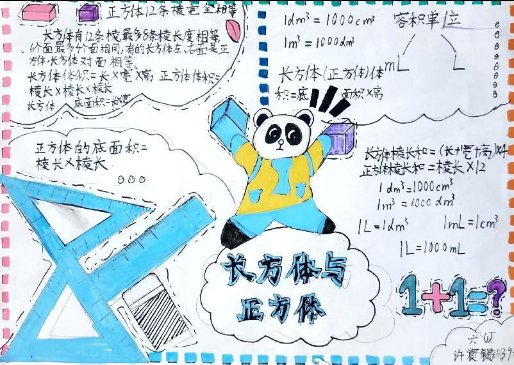 正方体12条棱宽全相等
长方体有12条棱最多8条棱长度相等
6个面最多个面相同,有的长方体左、右面是正
方体.长方体对面相等.
长方体体积=长×宽×高 正方体体积=
棱长×棱长×棱长
长方体 底面积=
正方体的底面积=
棱长×棱长
1dm³=1000cm³
1m³=1000dm³
容积单位
mL L
长方体(正方体)体
积=底面积×高
长方体棱长和=(长+宽+高)×4
正方体棱长和=棱长×12
1dm³=1000cm³
1m³=1000dm³
1L=1dm³ 1mL=1cm³
1L=1000mL
长方体与
正方体
1+1=?
六
许